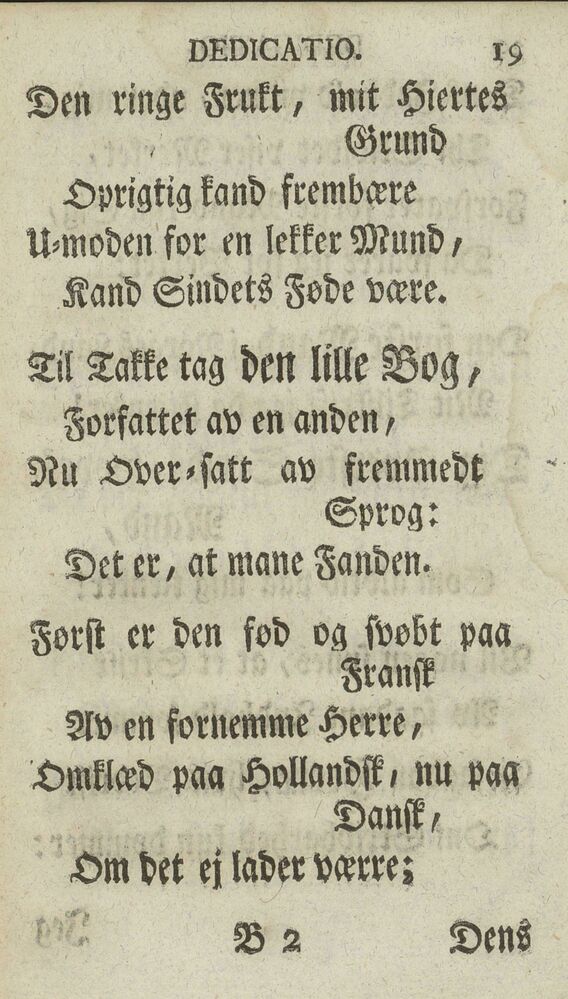 DEDICATIO. 19
Den ringe Frukt, mit Hiertes
Grund
Oprigtig kand frembære
U-moden for en lekker Mund,
Kand Sindets Føde være.
Til Takke tag den lille Bog,
Forfattet av en anden,
Nu Over-satt av fremmedt
Sprog:
Det er, at mane Fanden.
Først er den fød og svøbt paa
Fransk
Av en fornemme Herre,
Omklæd paa Hollandsk, nu paa
Dansk,
Om det ej lader værre;
B 2 Dens